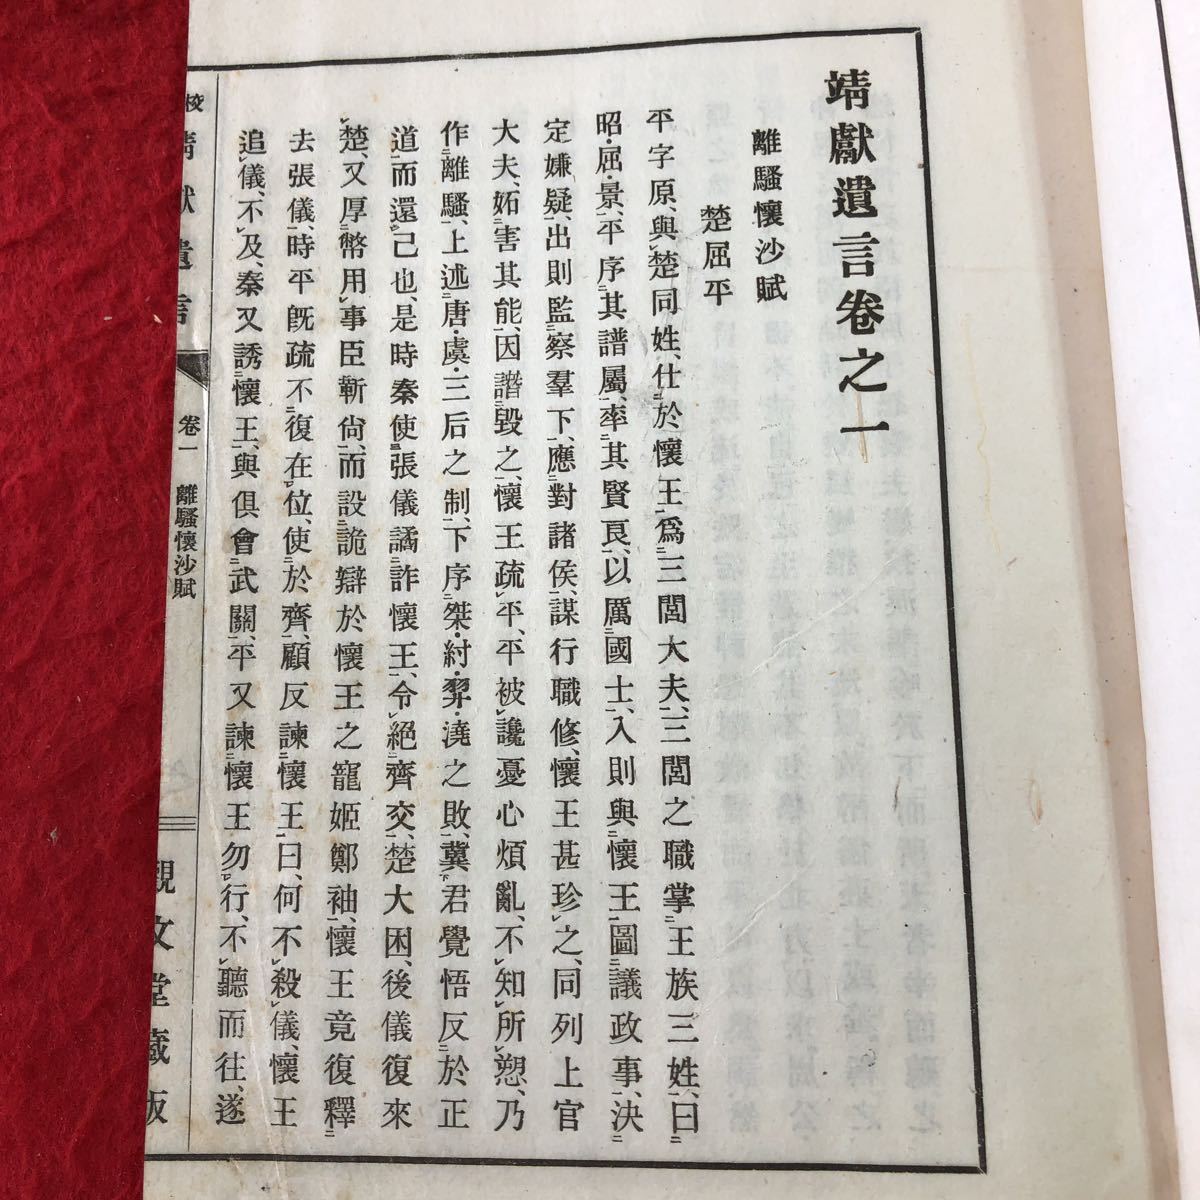 靖獻遺言卷之一
離騷懷沙賦
楚屈平
平字原、與楚同姓、仕於懷王、爲三閭大夫、三閭之職掌王族三姓、曰
昭・屈・景、平序其譜屬、率其賢良、以厲國士、入則與懷王圖議政事、決
定嫌疑、出則監察羣下、應對諸侯、謀行職修、懷王甚珍之、同列上官
大夫、妬害其能、因譖毀之、懷王疏平、平被讒憂心煩亂、不知所愬、乃
作離騷、上述唐・虞・三后之制、下序桀・紂・羿・澆之敗、冀君覺悟反於正
道而還己也、是時秦使張儀譎詐懷王、令絕齊交、楚大困、後儀復來
楚、又厚幣用事臣靳尙、而設詭辯於懷王之寵姬鄭袖、懷王竟復釋
去張儀、時平旣疏不復在位、使於齊、顧反諫懷王曰、何不殺儀、懷王
追儀、不及、秦又誘懷王、與俱會武關、平又諫懷王勿行、不聽而往、遂
校 靖獻遺言 卷一 離騷懷沙賦 觀文堂藏版